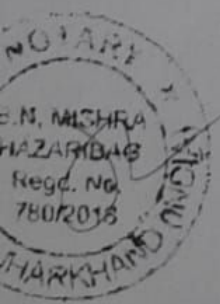 NOTARY
B.N. MISHRA
HAZARIBAG
Regd. No.
780/2016
JHARKHAND